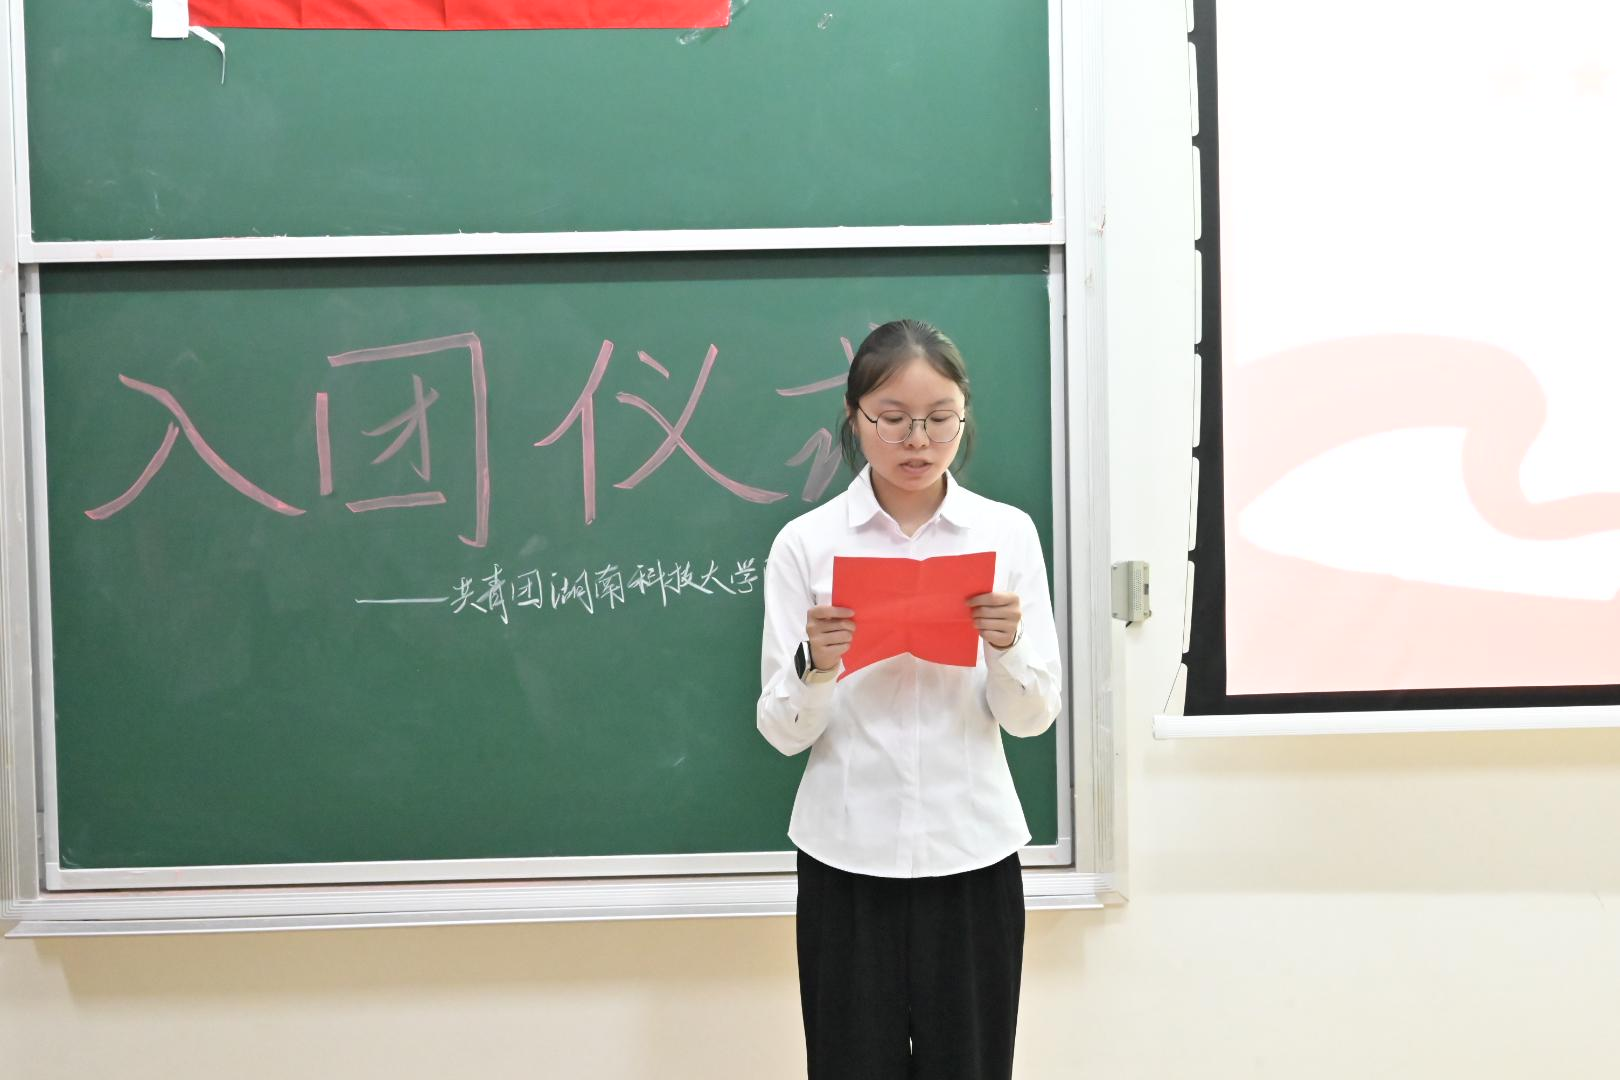 入团仪
——共青团湖南科技大学